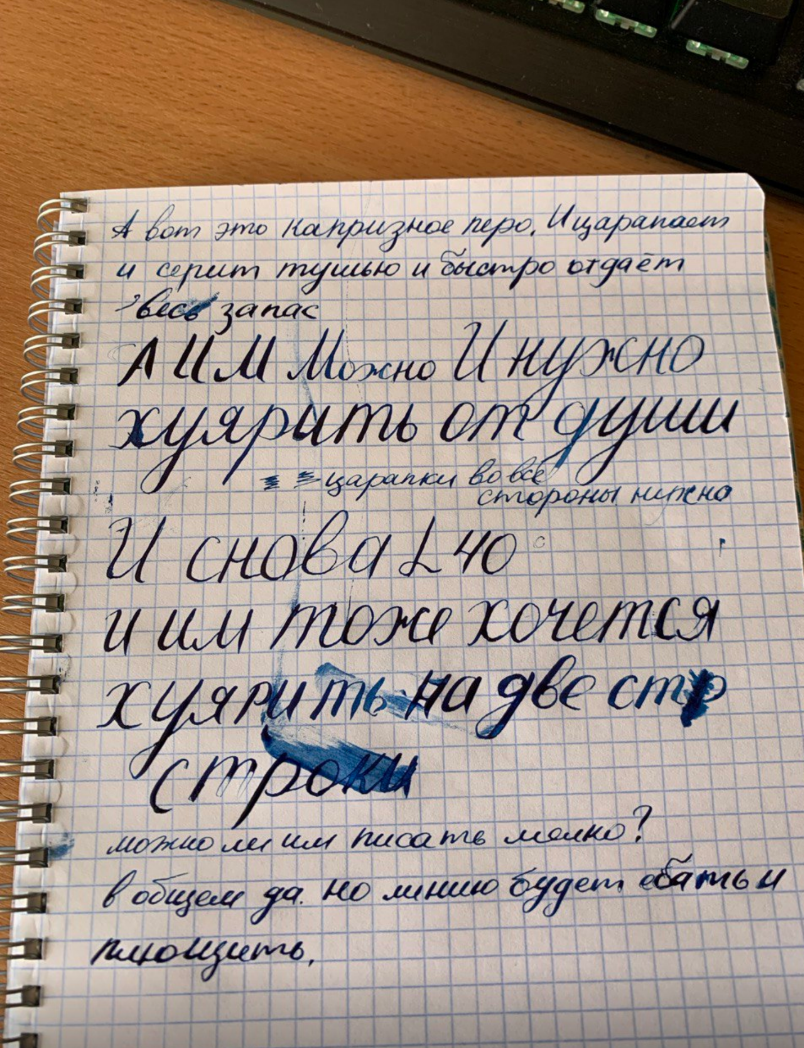 А вот это капризное перо. И царапает
и серит тушью и быстро отдаёт
весь запас
А ИМ Можно И нужно
хуярить от души
царапки во все
стороны нужно
И снова L 40
и им тоже хочется
хуярить на две стр
строки
можно ли им писать мелко?
в общем да. но линию будет ебать и
плющить.